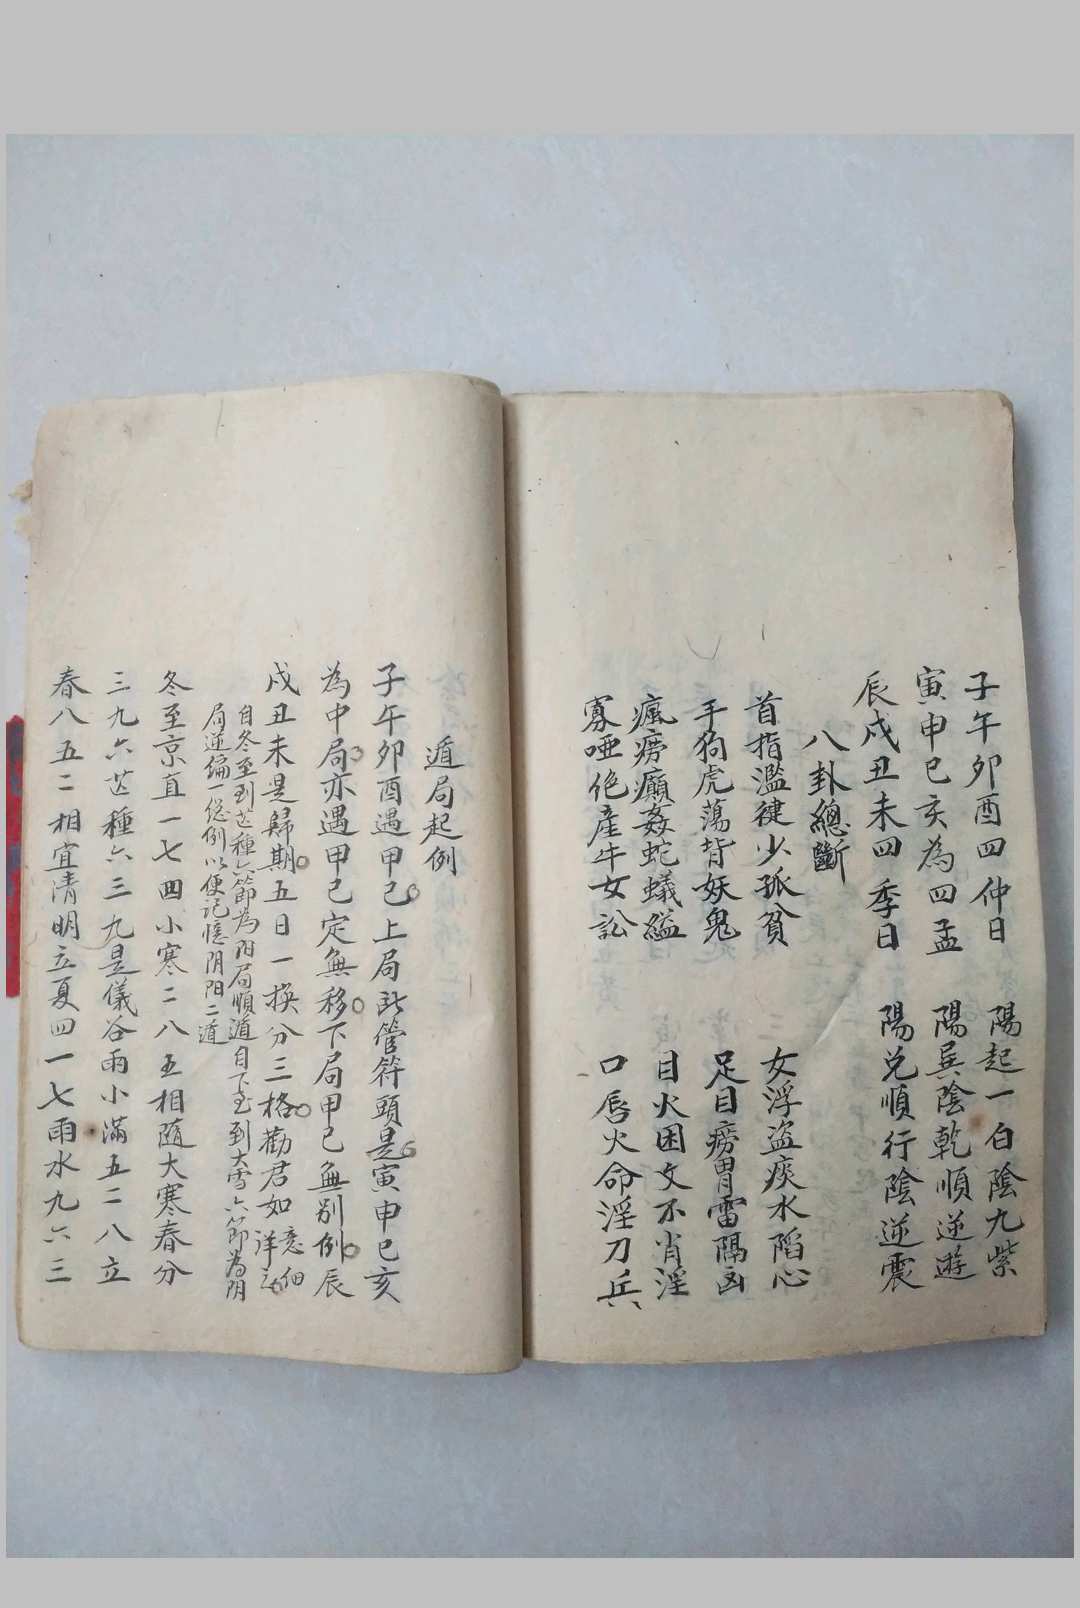 子午卯酉四仲日　陽起一白陰九紫
寅申巳亥為四孟　陽巽陰乾順逆遊
辰戌丑未四季日　陽兌順行陰逆震
八卦總斷
首指濫徤少孤貧　女浮盜痰水陷心
手狗虎蕩背妖鬼　足目癆胃雷隔凶
瘋癆癲姦蛇蟻縊　目火困文不肖淫
寡啞絶產牛女訟　口唇火命淫刀兵
遁局起例
子午卯酉遇甲己上局此管符頭是寅申巳亥
為中局亦遇甲己定無移下局甲己無别例辰
戌丑未是歸期五日一換分三格勸君如意細
詳
自冬至到芒種六節為阳局順遁自下至到大雪六節為阴
局逆編一总例以便記憶阴阳二遁
冬至京直一七四小寒二八五相隨大寒春分
三九六芒種六三九是儀谷雨小滿五二八立
春八五二相宜清明立夏四一七雨水九六三